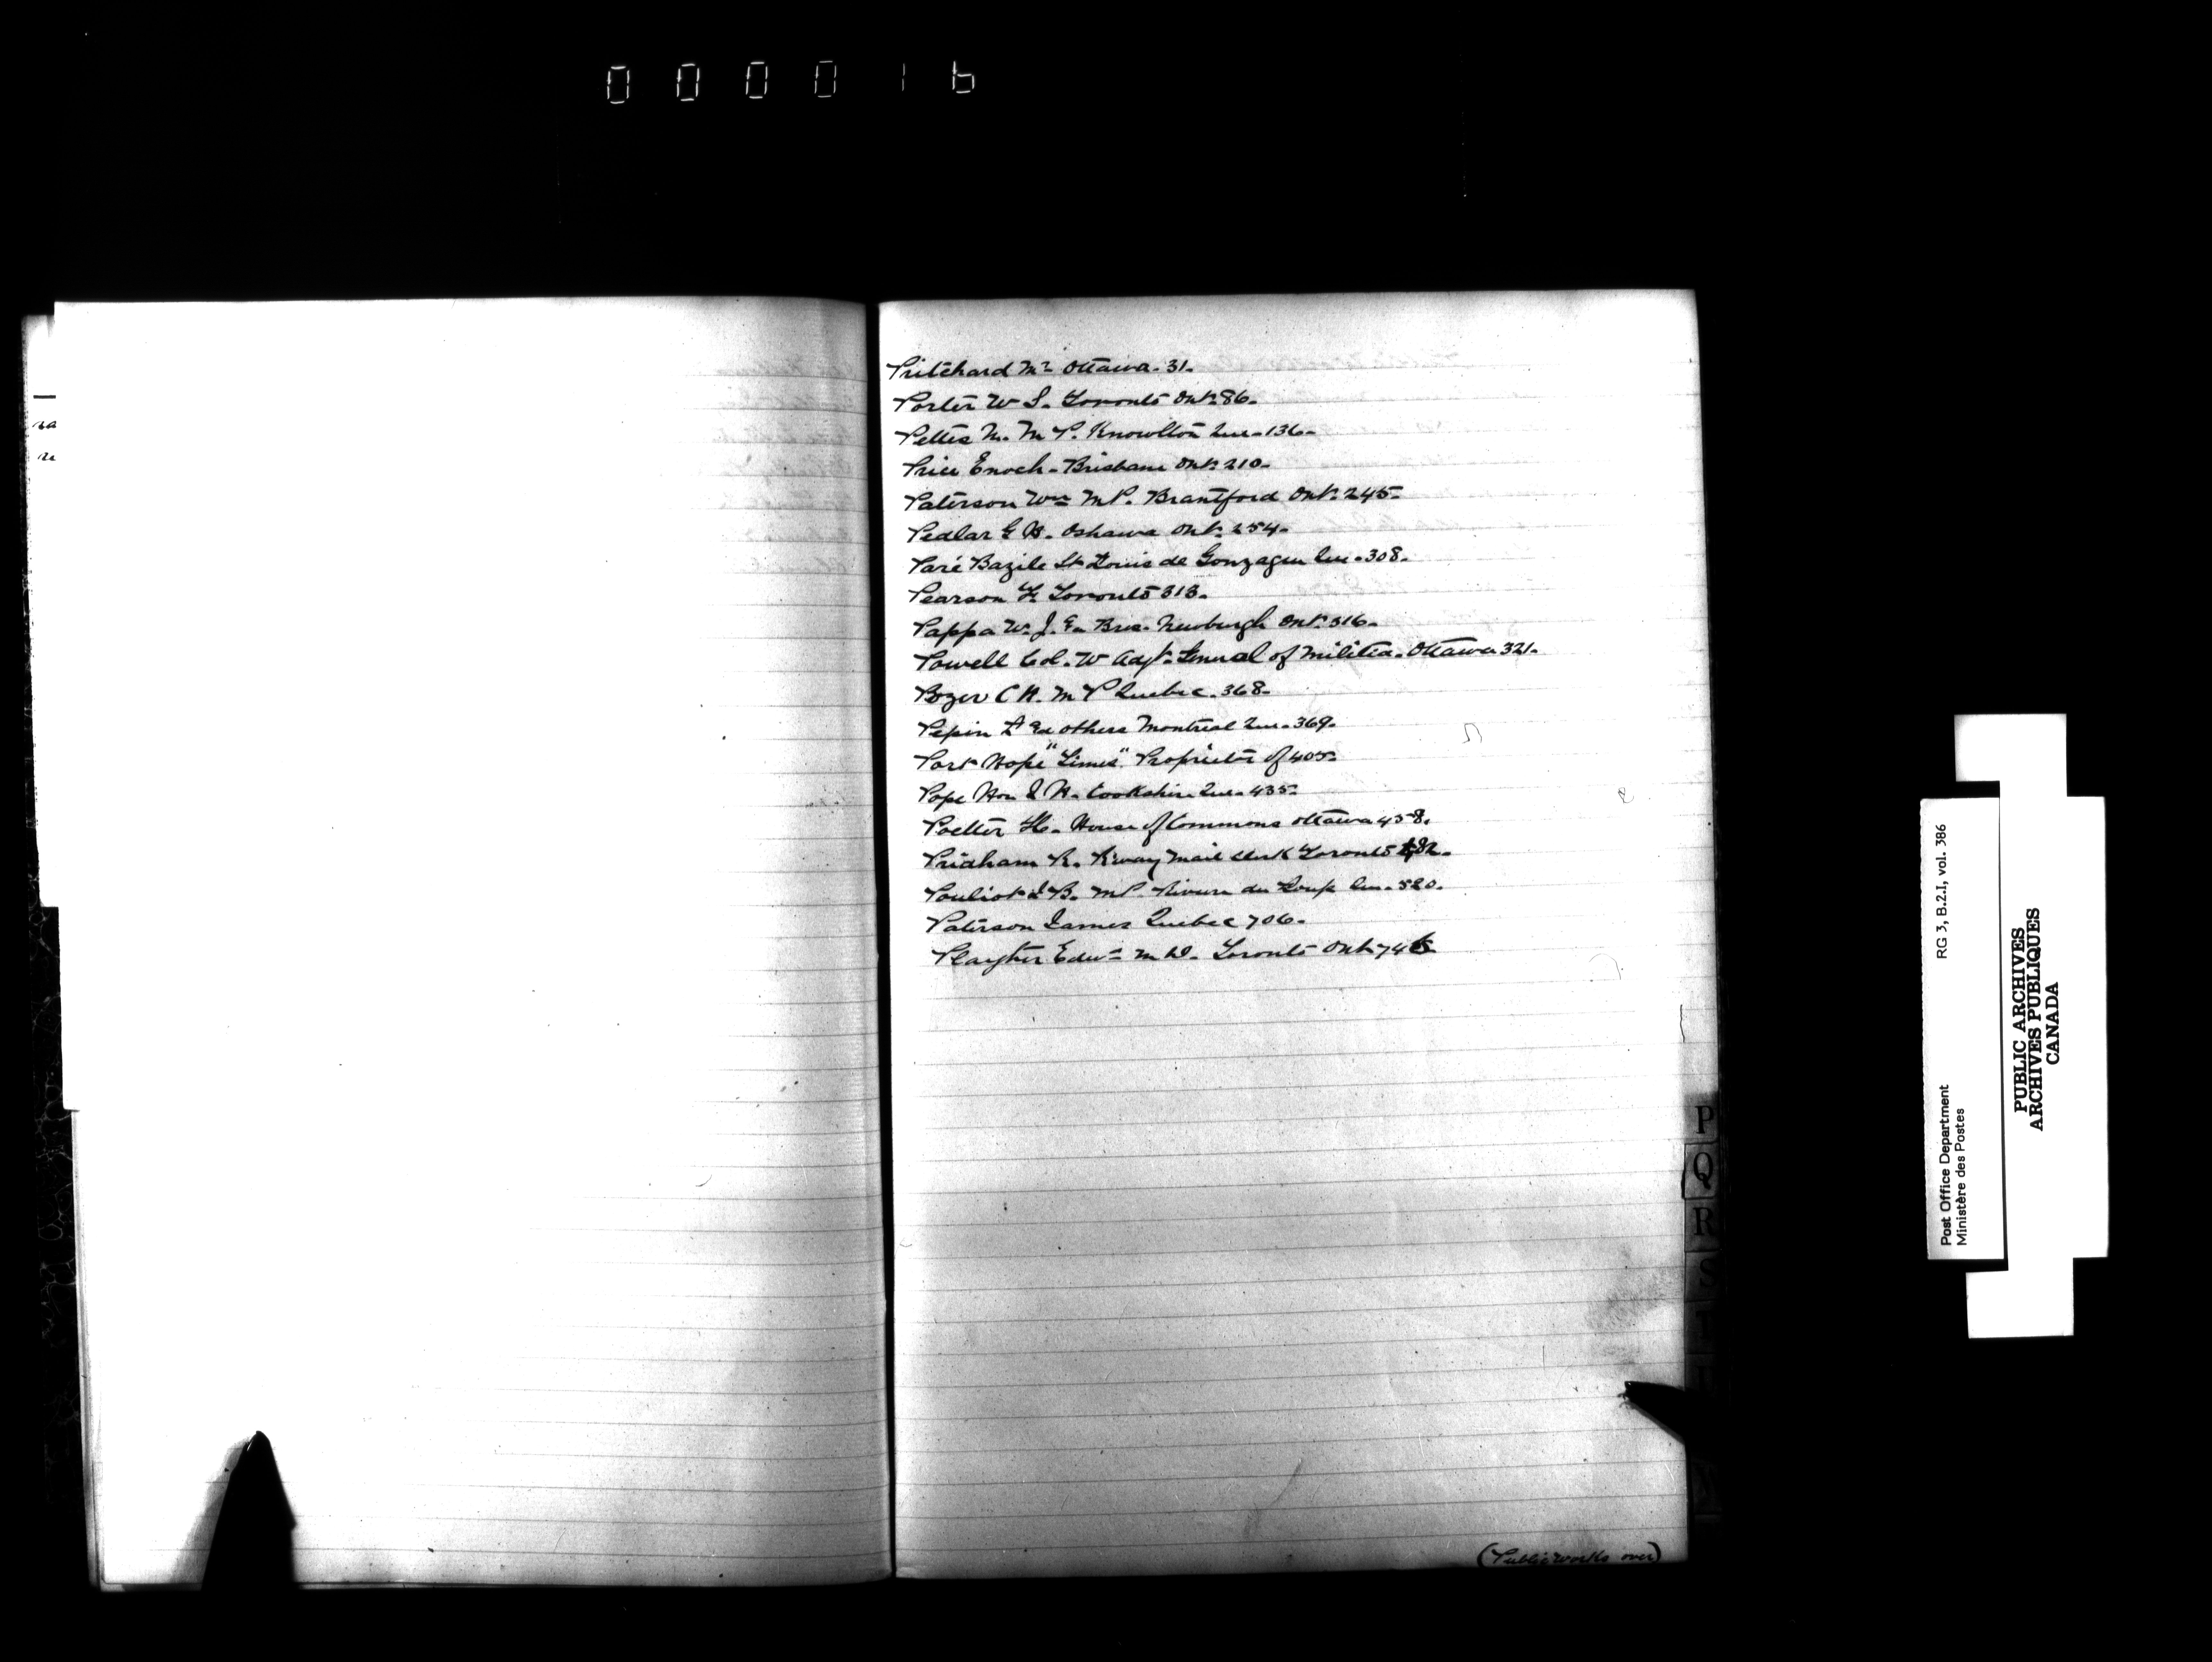 000016
Pritchard Mr Ottawa. 31.
Porter W S. Toronto Ont. 86.
Pettes N. M P. Knowlton Que. 136.
Price Enoch. Brisbane Ont. 210.
Paterson Wm M.P. Brantford Ont. 245.
Pedlar G H. Oshawa Ont. 254.
Paré Bazile St Louis de Gonzague Que. 308.
Pearson Toronto 313.
Pappa W. J. Newburgh Ont. 316.
Powell Col. W Adjt. General of Militia. Ottawa 321.
Pozer C H. M P Quebec. 368.
Pepin & others Montreal Que. 369.
Port Hope "Times" Proprietor of 405.
Pope Hon J H. Cookshire Que. 435.
House of Commons Ottawa 458.
Pridham R. R'way Mail Clerk Toronto 482.
Pouliot J B. MP. Riviere du Loup Que. 520.
Paterson James Quebec 706.
Playter Edwd M D. Toronto Ont. 746
(Public Works over)
P
Q
R
S
RG 3, B.2.I, vol. 386
Post Office Department
Ministère des Postes
PUBLIC ARCHIVES
ARCHIVES PUBLIQUES
CANADA